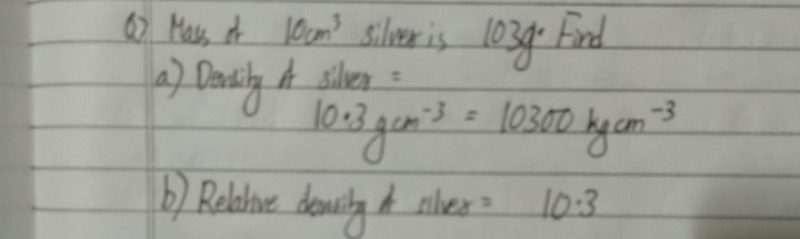 6) Mass of 10cm³ silver is 103g. Find
a) Density of silver =
10.3 g cm⁻³ = 10300 kg cm⁻³
b) Relative density of silver = 10.3